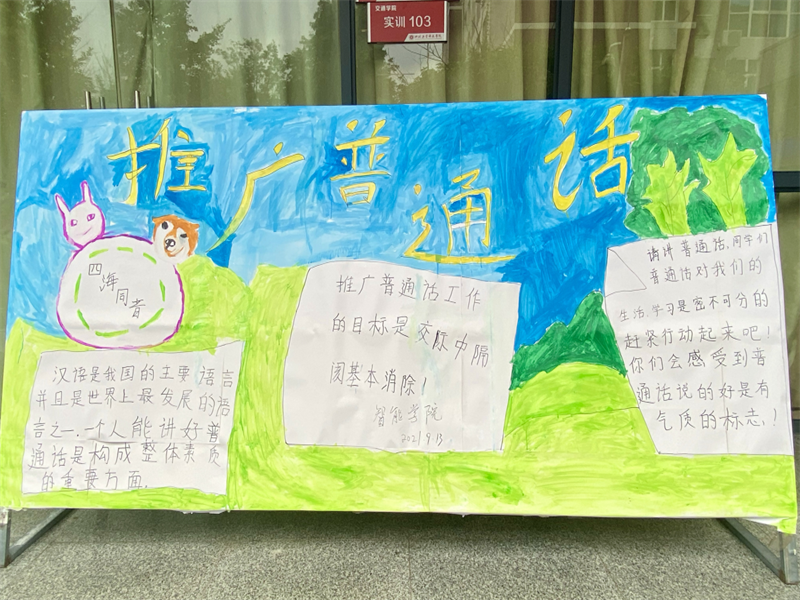 交通学院
实训103
推广普通话
四海
同音
汉语是我国的主要语言
并且是世界上最发展的语
言之一,一个人能讲好普
通话是构成整体素质
的重要方面.
推广普通话工作
的目标是交际中隔
阂基本消除!
智能学院
2021 9 13
请讲普通话,同学们
普通话对我们的
生活、学习是密不可分的
赶紧行动起来吧!
你们会感受到普
通话说的好是有
气质的标志!